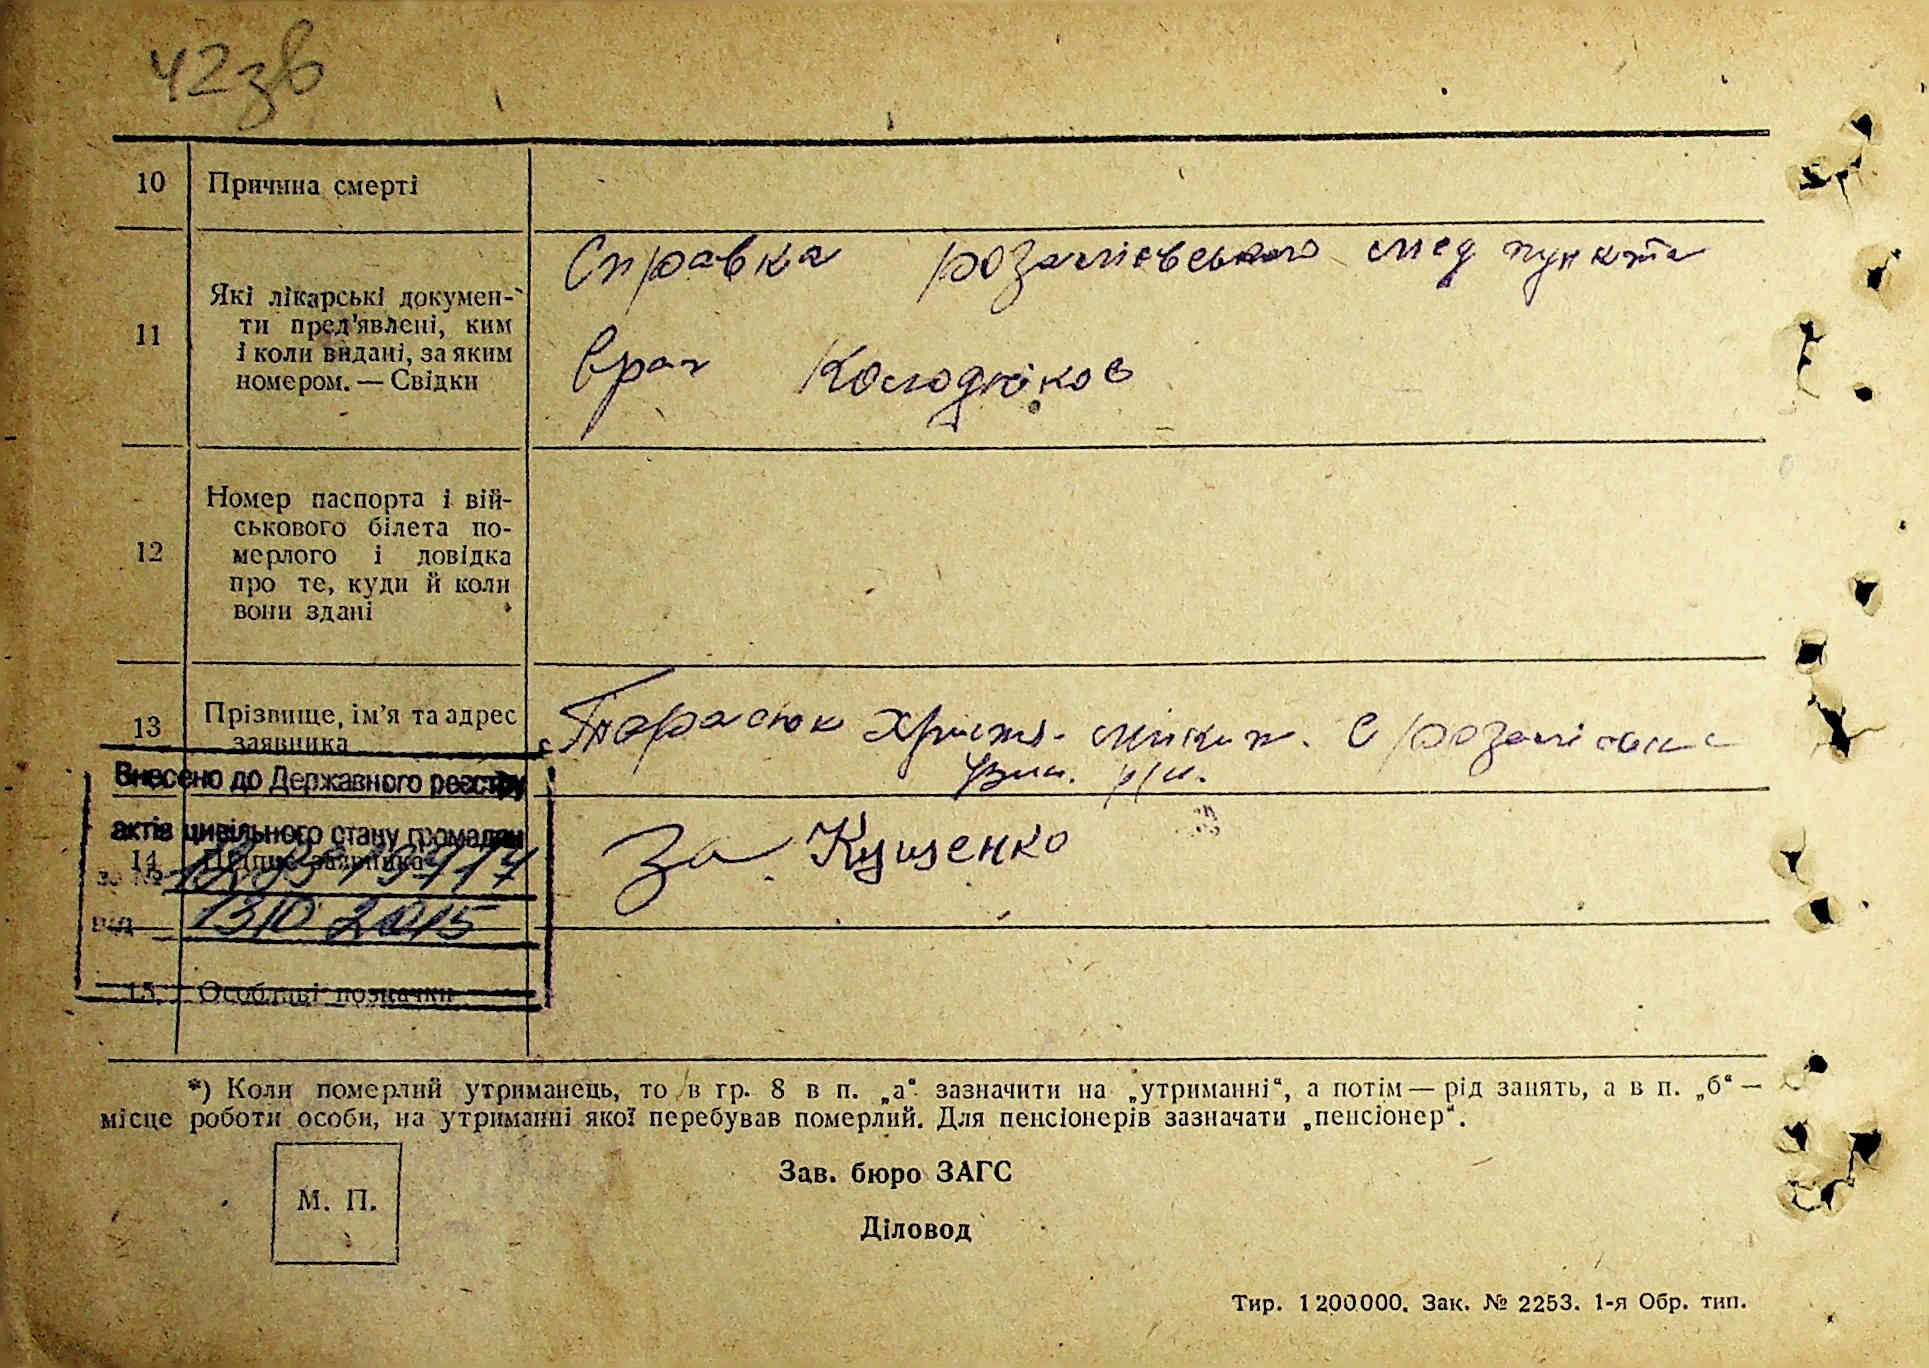 42зв
10 Причина смерті
11 Які лікарські докумен-
ти пред'явлені, ким
і коли видані, за яким
номером. — Свідки
Справка розаліевського мед пункта
врач Колодніков
12 Номер паспорта і вій-
ськового білета по-
мерлого і довідка
про те, куди й коли
вони здані
13 Прізвище, ім'я та адрес
заявника
Тарасюк с розалі
Внесено до Державного реєстру
актів цивільного стану громадян
14 Підпис заявника
за Кущенко
за №
від 13 10 2015
15. Особливі позначки
*) Коли померлий утриманець, то в гр. 8 в п. „а“ зазначити на „утриманні“, а потім — рід занять, а в п. „б“ —
місце роботи особи, на утриманні якої перебував померлий. Для пенсіонерів зазначати „пенсіонер“.
М. П.
Зав. бюро ЗАГС
Діловод
Тир. 1200000. Зак. № 2253. 1-я Обр. тип.